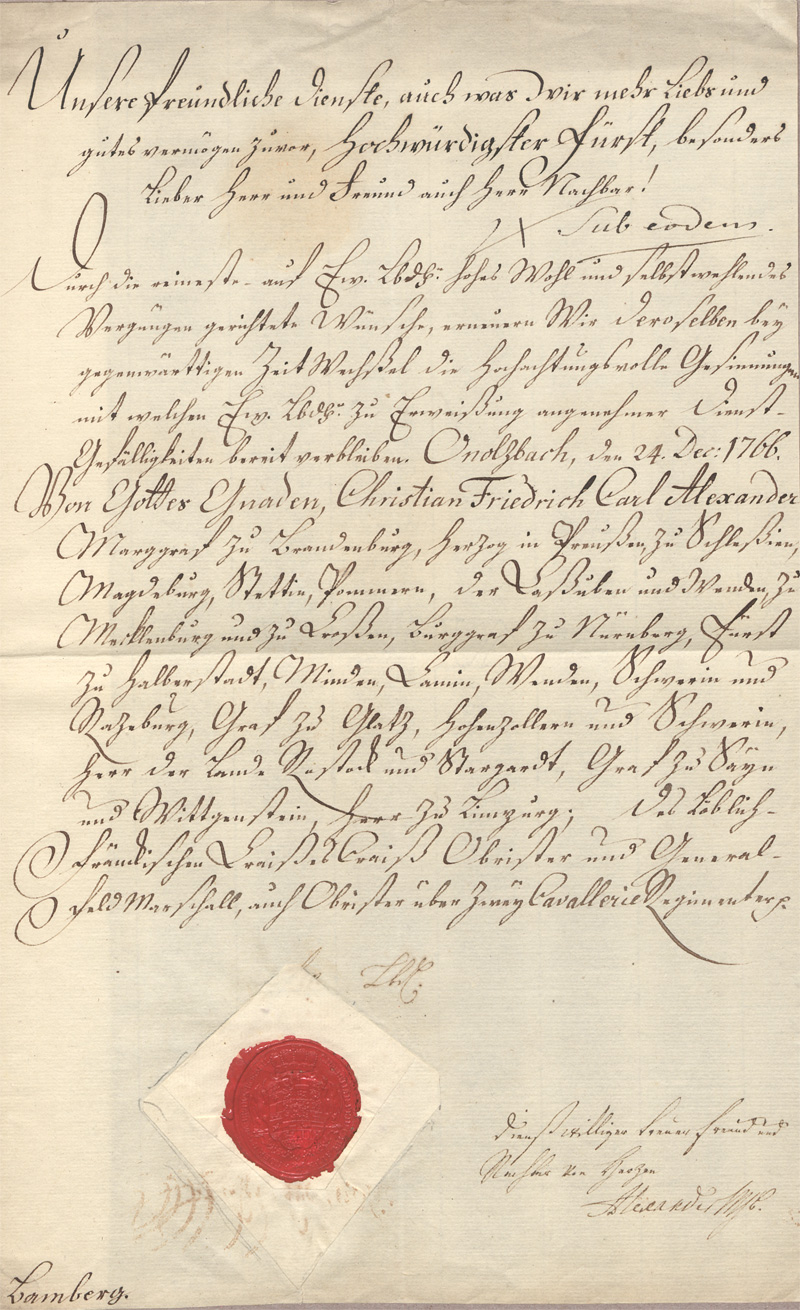 Unsere freundliche Dienste, auch was Wir mehr Liebs und
gutes vermögen zuvor, Hochwürdigster Fürst, besonders
Lieber Herr und Freund auch Herr Nachbar!
Sub eodem.
Durch die reineste- auf Ew. Lbd. hohes Wohl und selbstwehlendes
Vergnügen gerichtete Wünsche, erneuern Wir deroselben bey
gegenwärttigen Zeit Wechßel die Hochachtungsvolle Gesinnungen
mit welchen Ew. Lbd. zu Erweißung angenehmer Dienst-
Gefälligkeiten bereit verbleiben. Onolzbach, den 24. Dec: 1766.
Von Gottes Gnaden, Christian Friedrich Carl Alexander
Marggraf zu Brandenburg, Herzog in Preußen, zu Schleßien,
Magdeburg, Stettin, Pommern, der Caßuben und Wenden, zu
Mecklenburg und zu Croßen, Burggraf zu Nürnberg, Fürst
zu Halberstadt, Minden, Camin, Wenden, Schwerin und
Razeburg, Graf zu Glatz, Hohenzollern und Schwerin,
Herr der Lande Rostock und Stargardt, Graf zu Sayn
und Wittgenstein, Herr zu Limpurg; Des Löblich-
Fränckischen Craißes Craiß Obrister und General-
Feld Marschall, auch Obrister über zwey Cavallerie Regimenter
dienstwilliger treuer Freund und
Nachbar von Hertzen
Alexander
Bamberg.